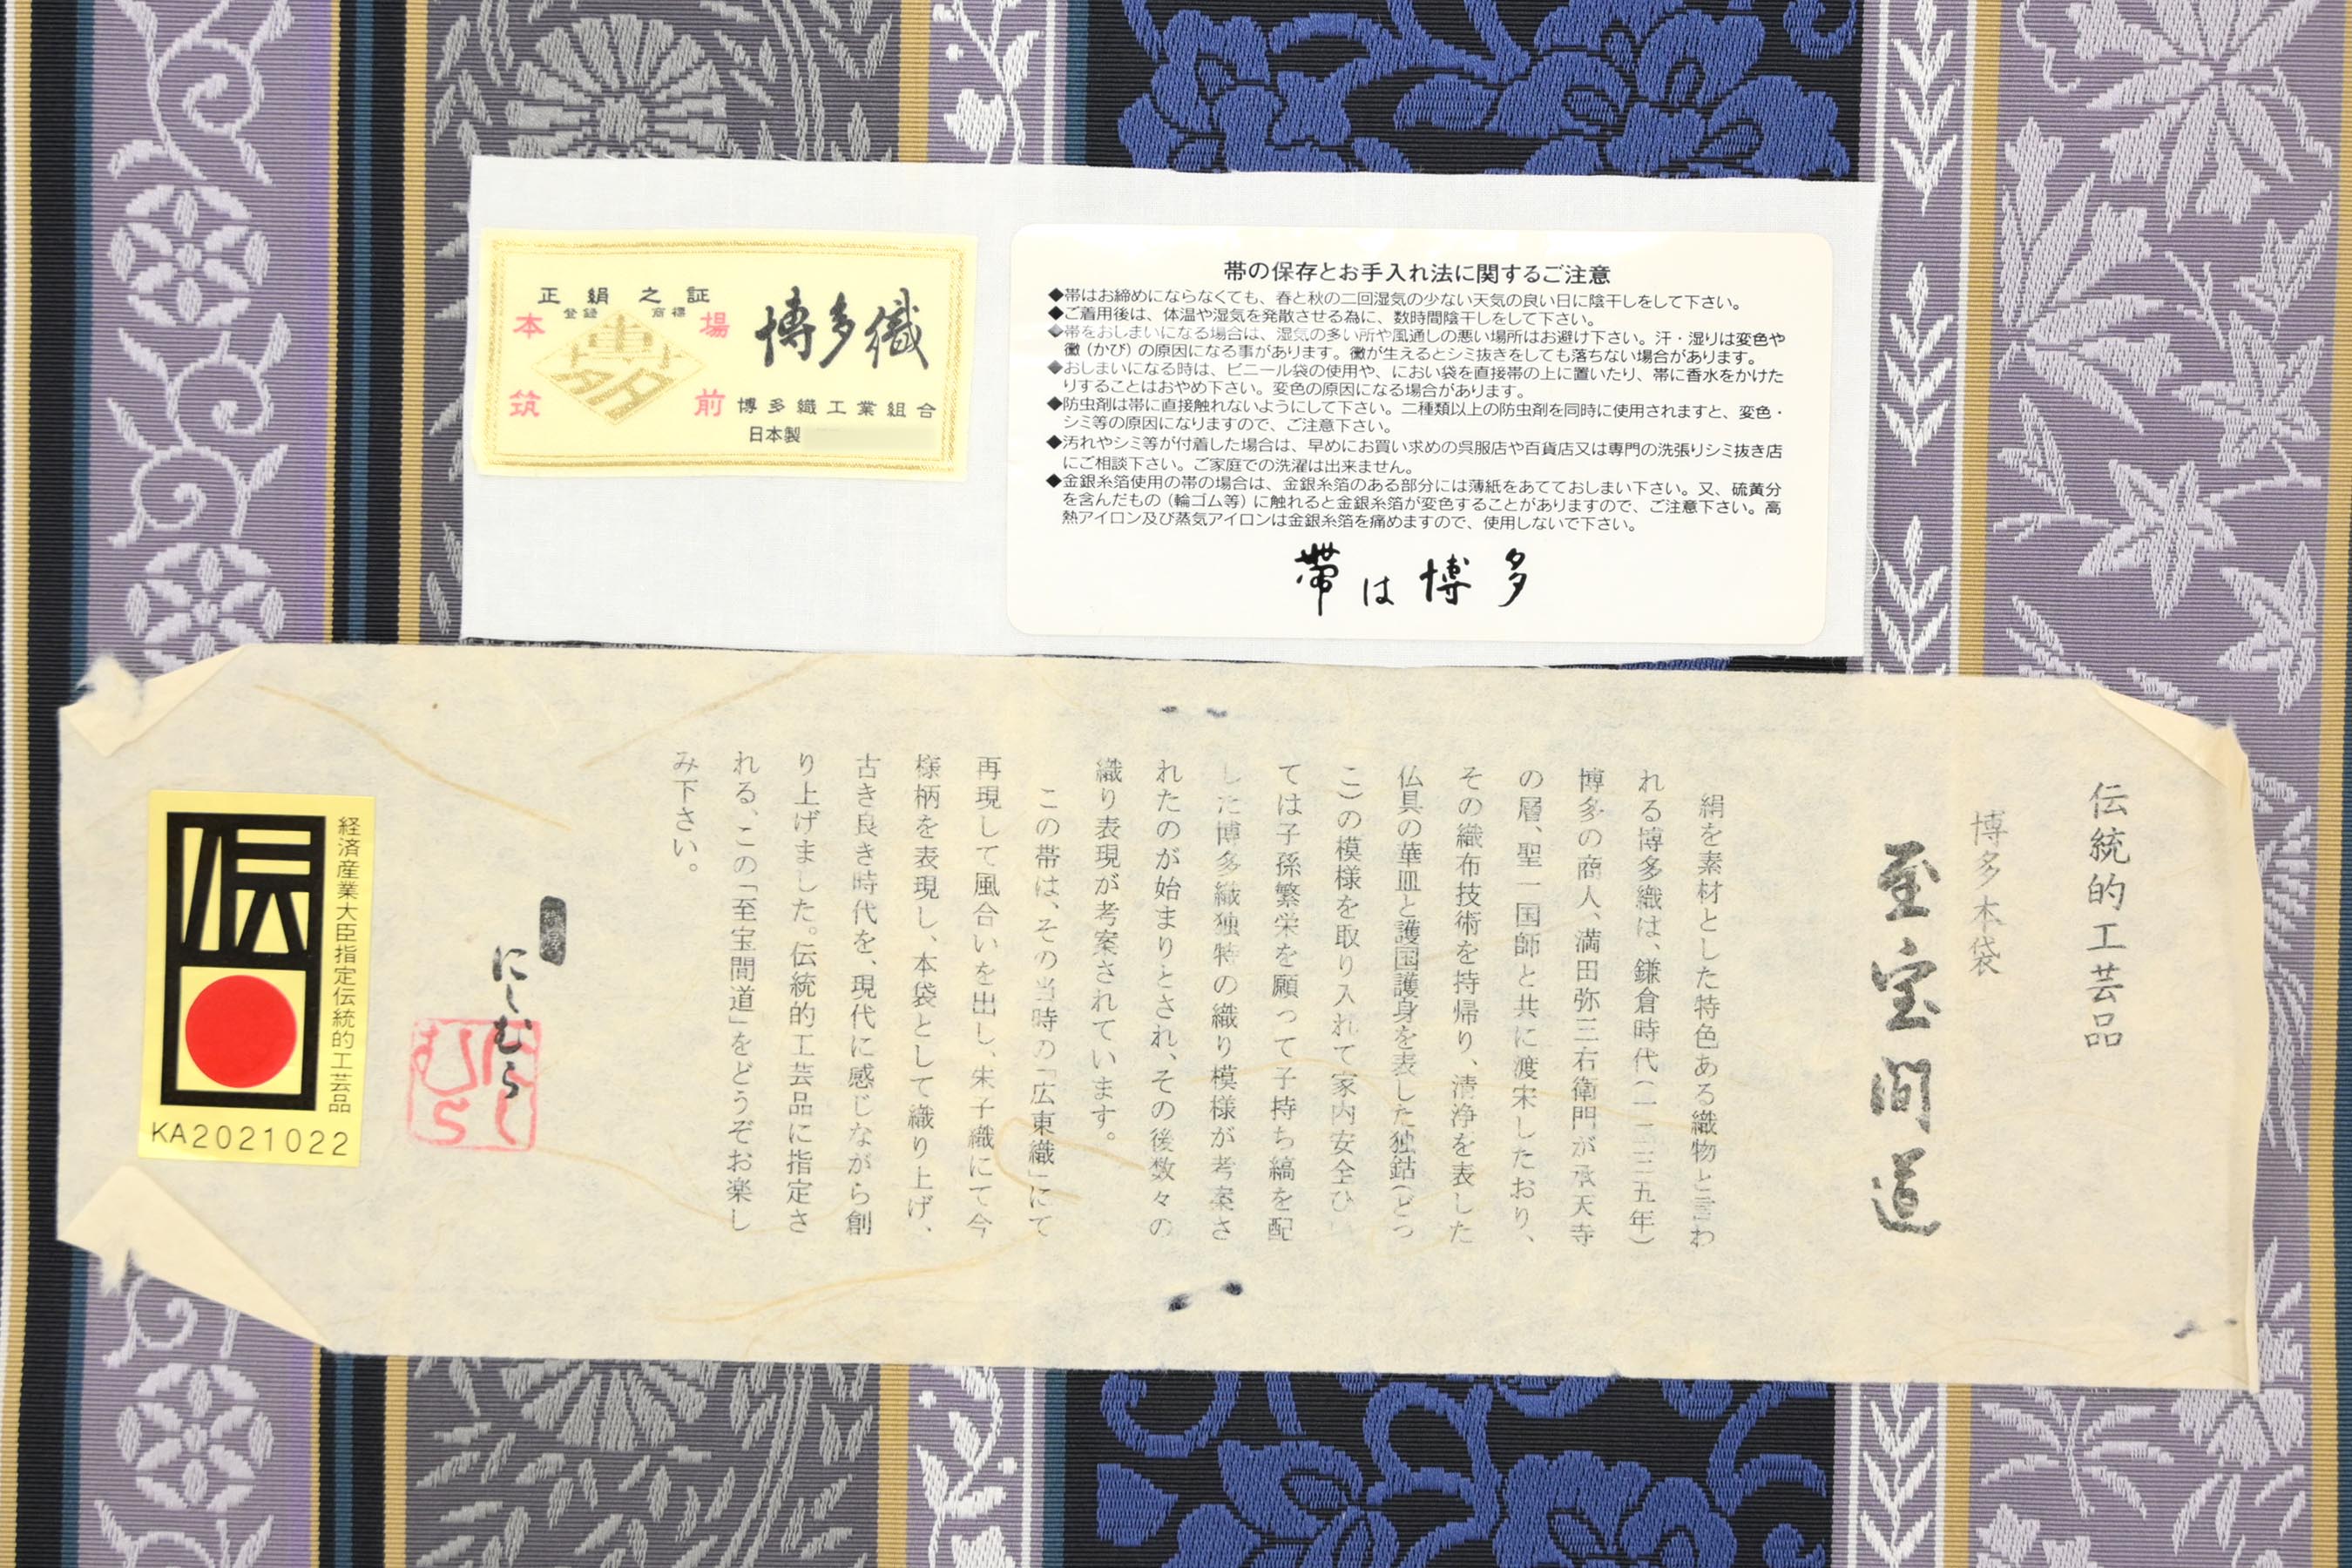 正絹之証
登録 商標
本場
筑前
博多織
博多織工業組合
日本製
帯の保存とお手入れ法に関するご注意
◆帯はお締めにならなくても、春と秋の二回湿気の少ない天気の良い日に陰干しをして下さい。
◆ご着用後は、体温や湿気を発散させる為に、数時間陰干しをして下さい。
◆帯をおしまいになる場合は、湿気の多い所や風通しの悪い場所はお避け下さい。汗・湿りは変色や
黴（かび）の原因になる事があります。黴が生えるとシミ抜きをしても落ちない場合があります。
◆おしまいになる時は、ビニール袋の使用や、におい袋を直接帯の上に置いたり、帯に香水をかけた
りすることはおやめ下さい。変色の原因になる場合があります。
◆防虫剤は帯に直接触れないようにして下さい。二種類以上の防虫剤を同時に使用されますと、変色・
シミ等の原因になりますので、ご注意下さい。
◆汚れやシミ等が付着した場合は、早めにお買い求めの呉服店や百貨店又は専門の洗張りシミ抜き店
にご相談下さい。ご家庭での洗濯は出来ません。
◆金銀糸箔使用の帯の場合は、金銀糸箔のある部分には薄紙をあてておしまい下さい。又、硫黄分
を含んだもの（輪ゴム等）に触れると金銀糸箔が変色することがありますので、ご注意下さい。高
熱アイロン及び蒸気アイロンは金銀糸箔を痛めますので、使用しないで下さい。
帯は博多
伝統的工芸品
博多本袋
至宝間道
絹を素材とした特色ある織物と言わ
れる博多織は、鎌倉時代（一二三五年）
博多の商人、満田弥三右衛門が承天寺
の層、聖一国師と共に渡宋したおり、
その織布技術を持帰り、清浄を表した
仏具の華皿と護国護身を表した独鈷（どっ
こ）の模様を取り入れて家内安全ひい
ては子孫繁栄を願って子持ち縞を配
した博多織独特の織り模様が考案さ
れたのが始まりとされ、その後数々の
織り表現が考案されています。
この帯は、その当時の「広東織」にて
再現して風合いを出し、朱子織にて今
様柄を表現し、本袋として織り上げ、
古き良き時代を、現代に感じながら創
り上げました。伝統的工芸品に指定さ
れる、この「至宝間道」をどうぞお楽し
み下さい。
にしむら
にしむら
経済産業大臣指定伝統的工芸品
伝
KA2021022